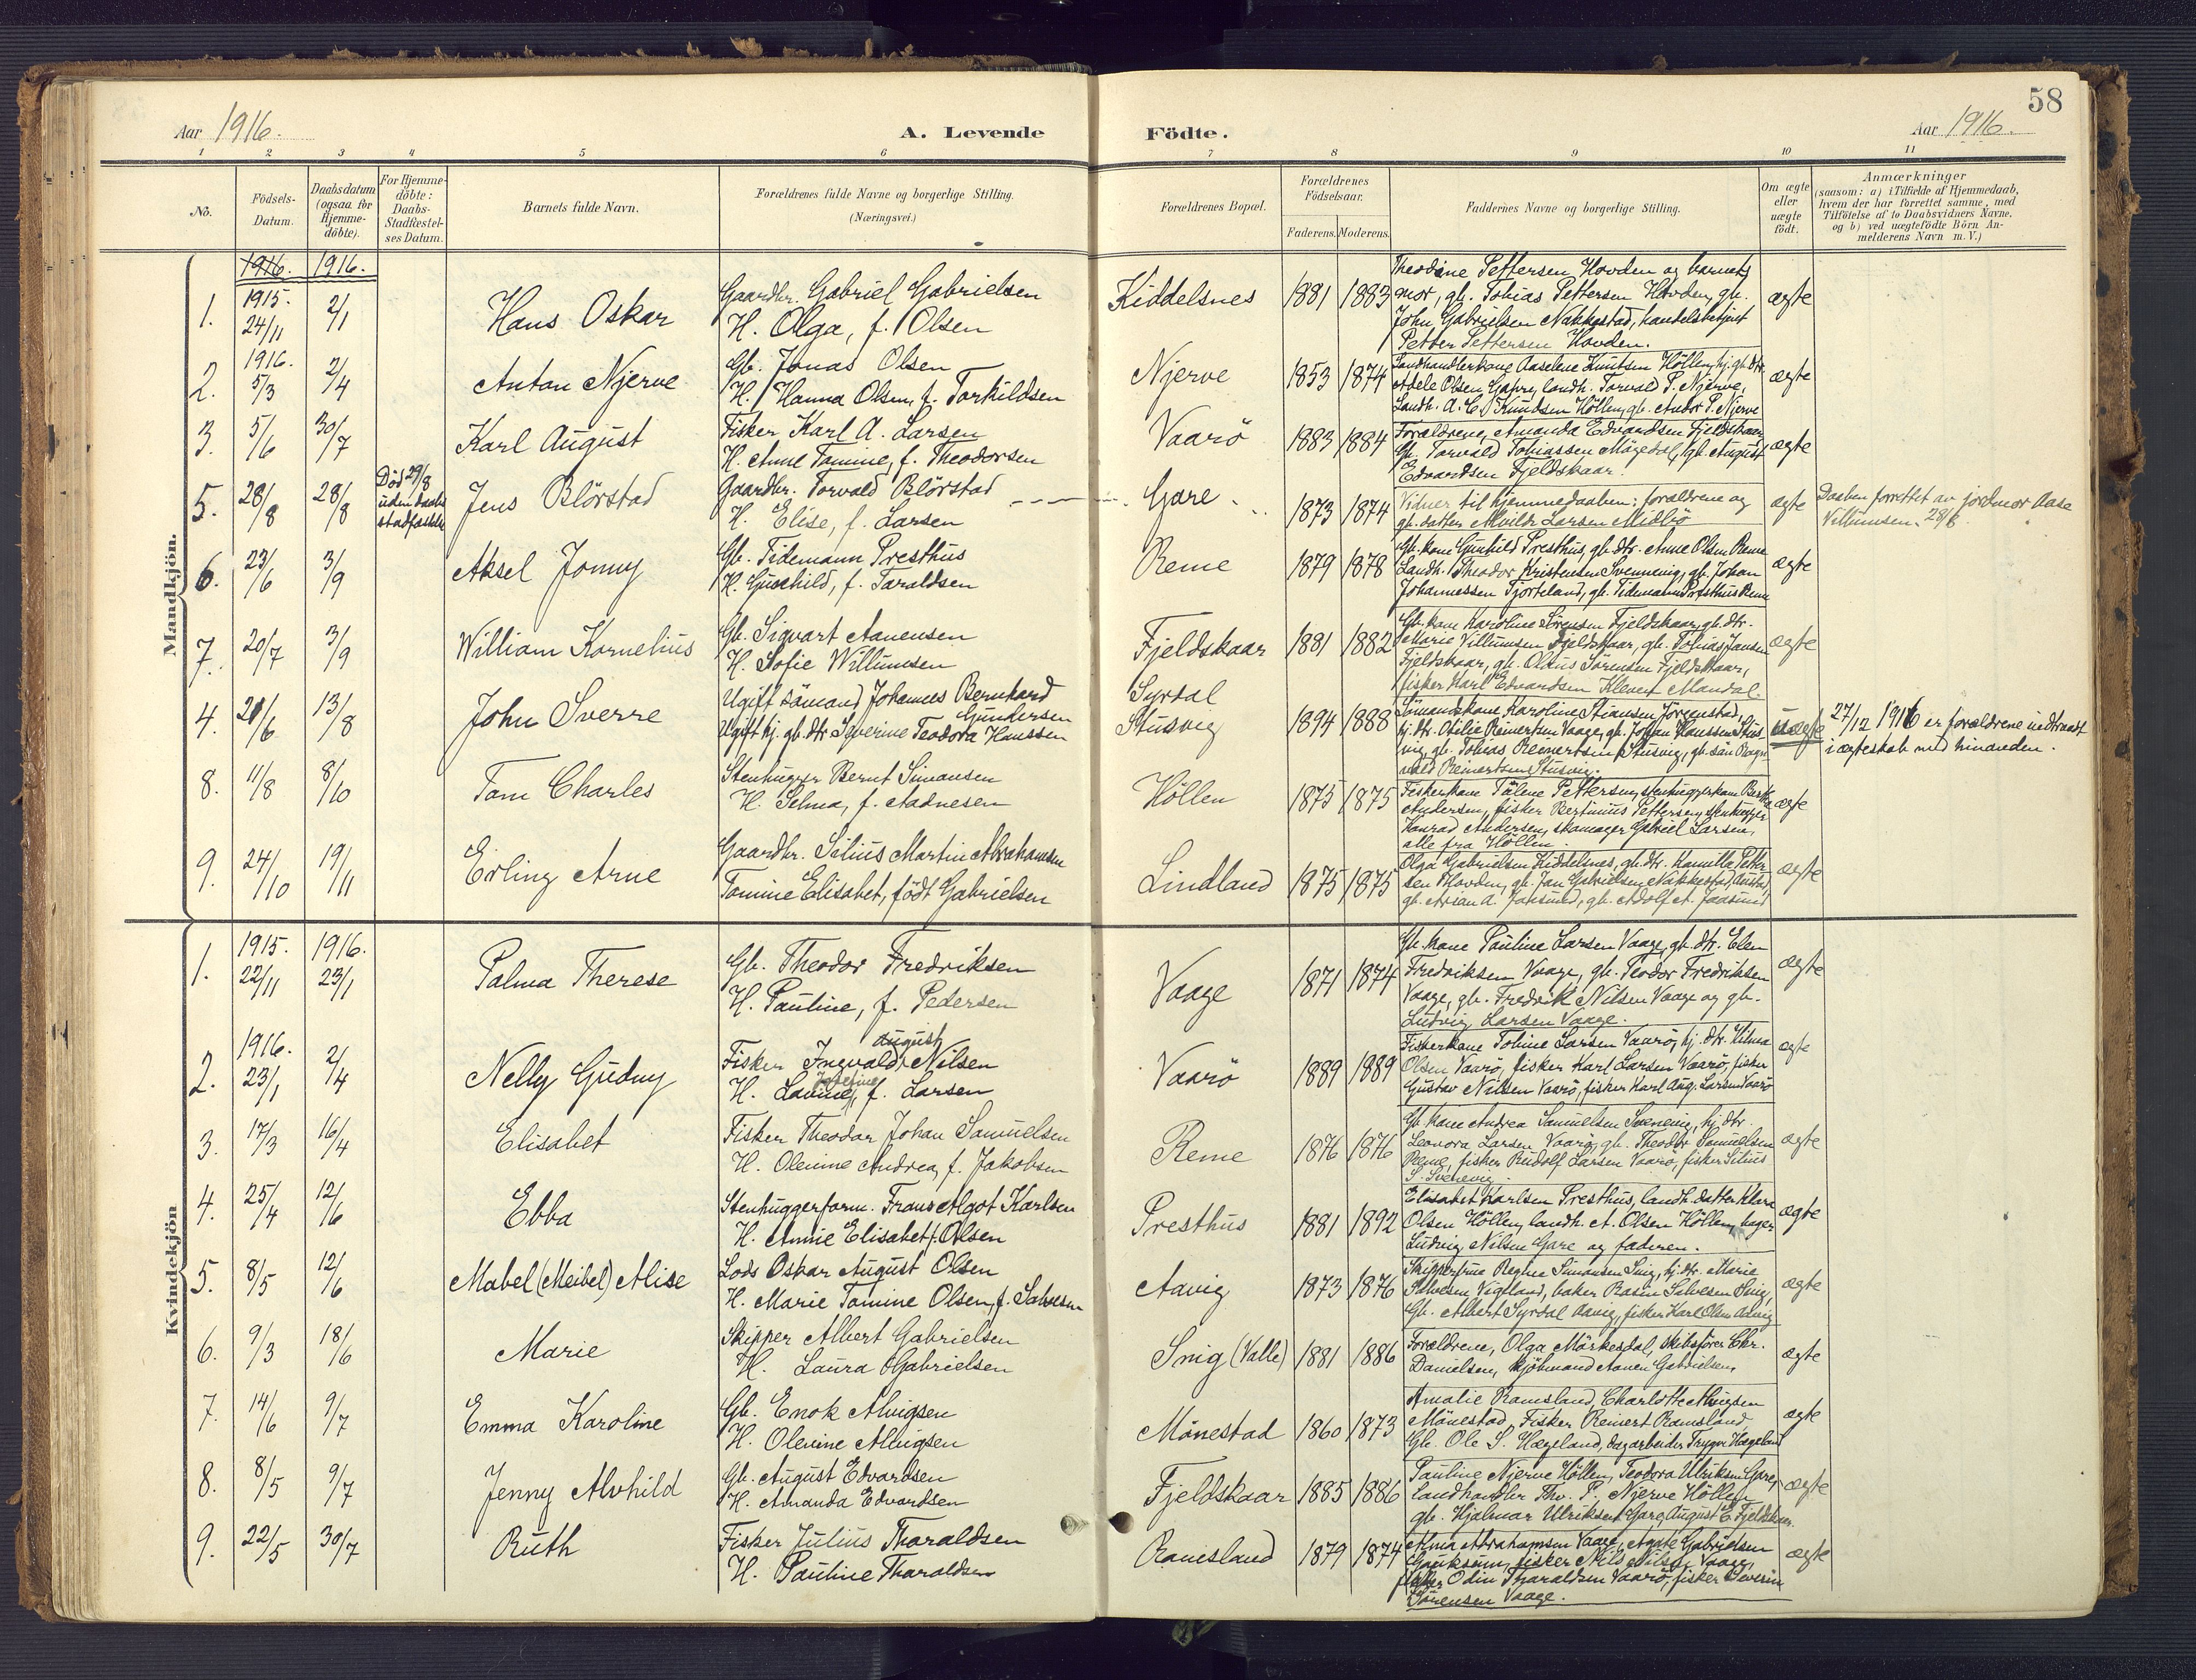 58
Aar 1916.
A. Levende Födte.
Aar 1916.
1 2 3 4 5 6 7 8 9 10 11
No.
Födsels-
Datum.
Daabsdatum
(ogsaa for
Hjemme-
döbte).
For Hjemme-
döbte:
Daabs-
Stadfæstel-
ses Datum.
Barnets fulde Navn.
Forældrenes fulde Navne og borgerlige Stilling.
(Næringsvei.)
Forældrenes Bopæl.
Forældrenes
Födselsaar.
Faderens. Moderens.
Faddernes Navne og borgerlige Stilling.
Om ægte
eller
uægte
født.
Anmærkninger
(saasom: a) i Tilfælde af Hjemmedaab,
hvem der har forrettet samme, med
Tilføielse af to Daabsvidners Navne,
og b) ved uægtefödte Börn An-
melderens Navn m. V.)
Mandkjön.
1916. 1916.
1. 1915. 24/11 2/1 Hans Oskar
Gaardbr. Gabriel Gabrielsen
H. Olga, f. Olsen
Kiddelsnes 1881 1883
Theodine Pettersen Hovden og barnets
mor, gb. Tobias Pettersen Hovden, gb.
John Gabrielsen Nakkestad, handelsbetjent
Petter Pettersen Hovden.
ægte
2. 1916. 5/3 2/4 Anton Njerve
Gb. Jonas Olsen
H. Hanna Olsen, f. Torkildsen
Njerve 1853 1874
Landhandlerkone Aaselene Knutsen Höllen, hj. gb. dtr.
Adele Olsen Gahre, landh. Torvald P. Njerve,
Landh. A. C. Knudsen Höllen, gb. Andor P. Njerve
ægte
3. 5/6 30/7 Karl August
Fisker Karl A. Larsen
H. Anne Tomine, f. Theodorsen
Vaarö 1883 1884
Forældrene, Amanda Edvardsen Fjeldskaar,
Gb. Torvald Tobiassen, gb. August
Edvardsen Fjeldskaar.
ægte
5. 28/8 28/8
Död 29/8
uden daabs
stadfæstelse
Jens Blörstad
Gaardbr. Torvald Blörstad
H. Elise, f. Larsen
Gare 1873 1874
Vidner til hjemmedaaben: forældrene og
gb. datter Alvilde Larsen Midbö
ægte
Daaben forrettet av jordmor Aase
Villumsen 28/8
6. 23/6 3/9 Aksel Jonny
Gb. Tidemann Presthus
H. Gunhild, f. Taraldsen
Reme 1879 1878
Gb. kone Gunhild Presthus, gb. dtr. Anne Olsen Reme
Landh. Theodor Kristensen Svennevig, gb. Johan
Johannessen Tjorteland, gb. Tidemann Presthus Reme
ægte
7. 20/7 3/9 William Kornelius
Gb. Sigvart Aanensen
H. Sofie Willumsen
Fjeldskaar 1881 1882
Gb. kone Karoline Sörensen Fjeldskaar, gb. dtr.
Marie Villumsen Fjeldskaar, gb. Tobias Jansen
Fjeldskaar, gb. Olaus Sörensen Fjeldskaar,
fisker Karl Edvardsen Kleven Mandal.
ægte
4. 21/6 13/8 John Sverre
Ugift sömand Johannes Bernhard
Gundersen
Ugift hj. gb. dtr. Severine Teodora Hanssen
Syrdal
Stusvig 1894 1888
Sömandskone Karoline Stiansen Jörgenstad,
hj. dtr. Otilie Reinertsen Vaage, gb. Johan Hanssen Stus-
vig, gb. Tobias Reinertsen Stusvig, gb. sön Ragn-
vald Reinertsen Stusvig.
uægte
27/12 1916 er forældrene indtraadt
i ægteskab med hinanden.
8. 11/8 8/10 Tom Charles
Stenhugger Bernt Simonsen
H. Selma, f. Aadnesen
Höllen 1875 1875
Fiskerkone Tälene Pettersen, stenhuggerkone Berthe
Andersen, fisker Bertinius Pettersen, stenhugger
Konrad Andersen, skomager Gabriel Larsen,
alle fra Höllen.
ægte
9. 24/10 19/11 Erling Arne
Gaardbr. Silius Martin Abrahamsen
Tomine Elisabet, född Gabrielsen
Lindland 1875 1875
Olga Gabrielsen Kiddelsnes, gb. dtr. Kamilla Petter-
sen Hovden, gb. Jan Gabrielsen Nakkestad,
gb. A. Jaasund, gb. Adolf A. Jaasund
ægte
Kvindekjön
1. 1915. 22/11 1916. 23/1 Palma Therese
Gb. Theodor Fredriksen
H. Pauline, f. Pedersen
Vaage 1871 1874
Gb. kone Pauline Larsen Vaage, gb. dtr. Elen
Fredriksen Vaage, gb. Teodor Fredriksen
Vaage, gb. Fredrik Nilsen Vaage og gb.
Ludvig Larsen Vaage.
ægte
2. 1916. 23/1 2/4 Nelly Gudny
august
Fisker Ingvald Nilsen
H. Lovine, f. Larsen
Vaarö 1889 1889
Fiskerkone Tobine Larsen Vaarö, hj. dtr. Hilma
Olsen Vaarö, fisker Karl Larsen Vaarö, fisker
Gustav Nilsen Vaarö, fisker Karl Aug. Larsen Vaarö
ægte
3. 17/3 16/4 Elisabet
Fisker Theodor Johan Samuelsen
H. Olenine Andrea, f. Jakobsen
Reme 1876 1876
Gb. kone Andrea Samuelsen Svenevig, hj. dtr.
Leonora Larsen Vaarö, gb. Theodor Samuelsen
Reme, fisker Rudolf Larsen Vaarö, fisker Silius
S. Svenevig.
ægte
4. 25/4 12/6 Ebba
Stenhuggerform. Frans Algot Karlsen
H. Annie Elisabet f. Olsen
Presthus 1881 1892
Elisabet Karlsen Presthus, landh. datter Klara
Olsen Höllen, landh. A. Olsen Höllen, bager
Ludvig Nilsen Gare og faderen.
ægte
5. 8/5 12/6 Mabel (Meibel) Alise
Lods Oskar August Olsen
H. Marie Tomine Olsen, f. Salvesen
Aavig 1873 1876
Skipperfrue Regine Simonsen Snig, hj. dtr. Marie
Salvesen Vigeland, baker Rasm Salvesen Snig,
Gb. Albert Syrdal Aavig, fisker Karl Olsen Aavig
ægte
6. 9/3 18/6 Marie
Skipper Albert Gabrielsen
H. Laura Gabrielsen
Snig (Valle) 1881 1886
Forældrene, Olga Mörkesdal, skibsförer Chr.
Danielsen, kjöbmand Aanen Gabrielsen.
ægte
7. 14/6 9/7 Emma Karoline
Gb. Enok Alvigsen
H. Olevine Alvigsen
Mönestad 1860 1873
Amalie Ramsland, Charlotte Alvigsen
Mönestad, Fisker Reinert Ramsland,
Gb. Ole S. Hægeland, dagarbeider Trygve Hægeland
ægte
8. 8/5 9/7 Jenny Alvhild
Gb. August Edvardsen
H. Amanda Edvardsen
Fjeldskaar 1885 1886
Pauline Njerve Höllen, Teodora Ulriksen Gare,
landhandler Thv. P. Njerve Höllen,
gb. Hjalmar Ulriksen Gare, August E. Fjeldskaar.
ægte
9. 22/5 30/7 Ruth
Fisker Julius Tharaldsen
H. Pauline Tharaldsen
Ramsland 1879 1874
Alma Abrahamsen Vaage, Agate Gabrielsen
Gauksum, fisker Nils Nilsen Vaage,
fisker Odin Tharaldsen Vaarö, fisker Severin
Sörensen Vaage.
ægte